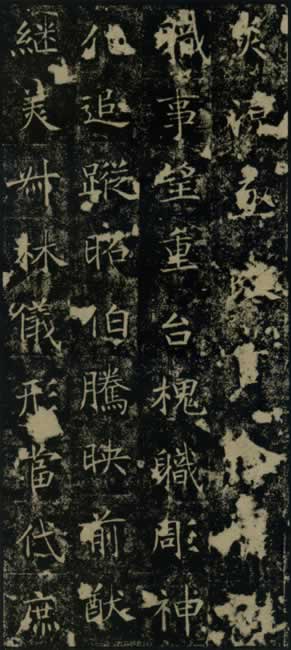 炎涼亟
職事望重台槐職彫神
化追蹤昭伯騰映前猷
継美林儀形當代庶